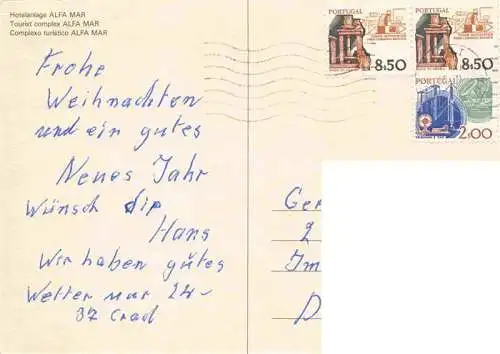 Hotelanlage ALFA MAR
Tourist complex ALFA MAR
Complexo turistico ALFA MAR
Frohe
Weihnachten
und ein gutes
Neues Jahr
Wünsch dir
Hans
Wir haben gutes
Wetter nur 24-
37 Grad
PORTUGAL
8$50
PORTUGAL
8$50
PORTUGAL
2$00
Ger
2
Im
D